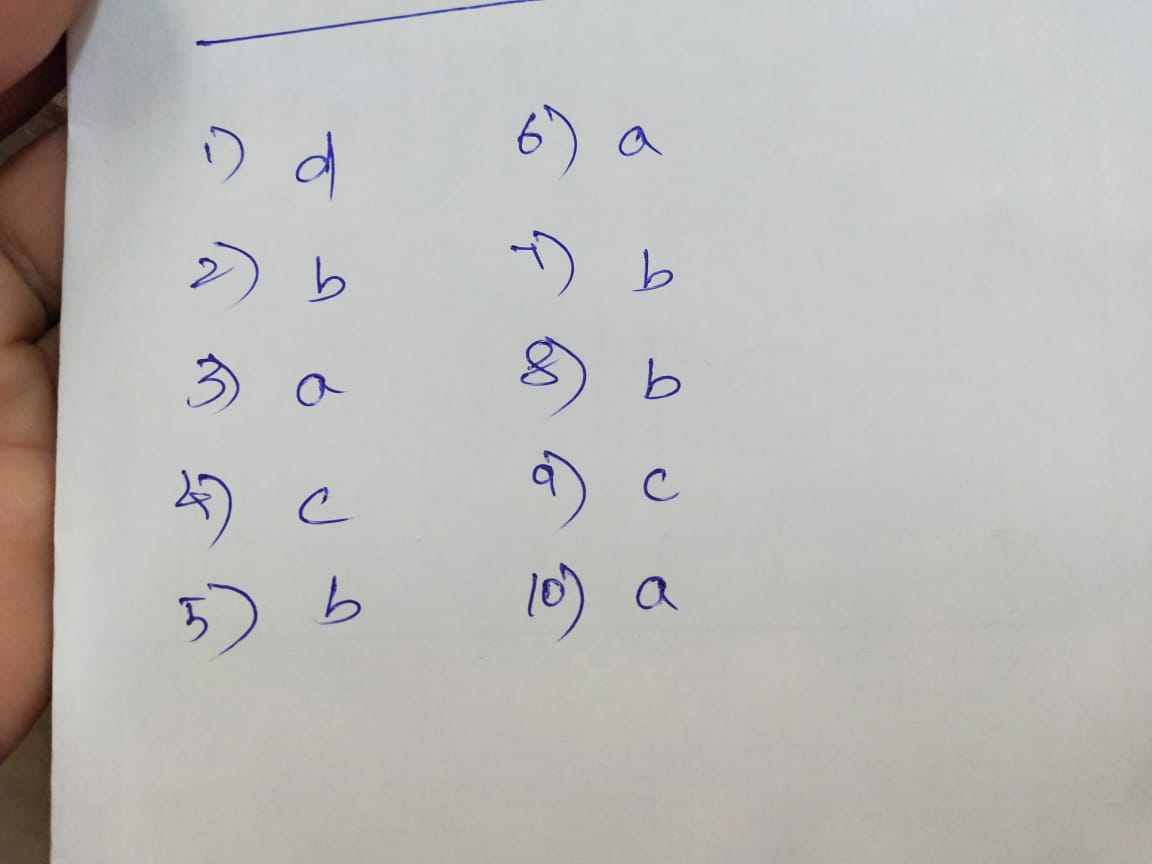 1) d
2) b
3) a
4) c
5) b
6) a
7) b
8) b
9) c
10) a